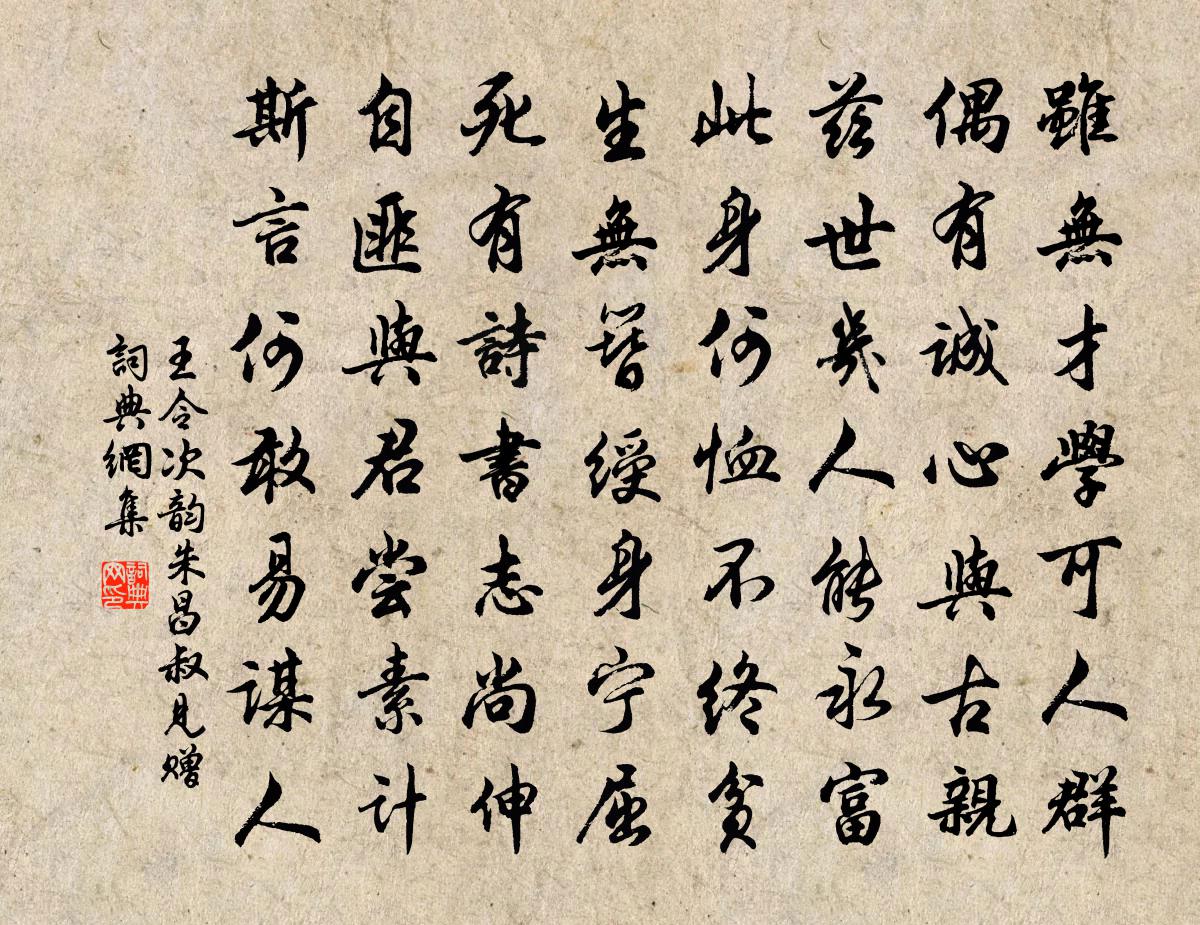 雖無才學可人群
偶有誠心與古親
茲世幾人能永富
此身何恤不終貧
生無簪綬身宁屈
死有詩書志尚伸
自匪與君尝素计
斯言何敢易謀人
王令次韵朱昌叔見赠
詞典網集
詞典网印